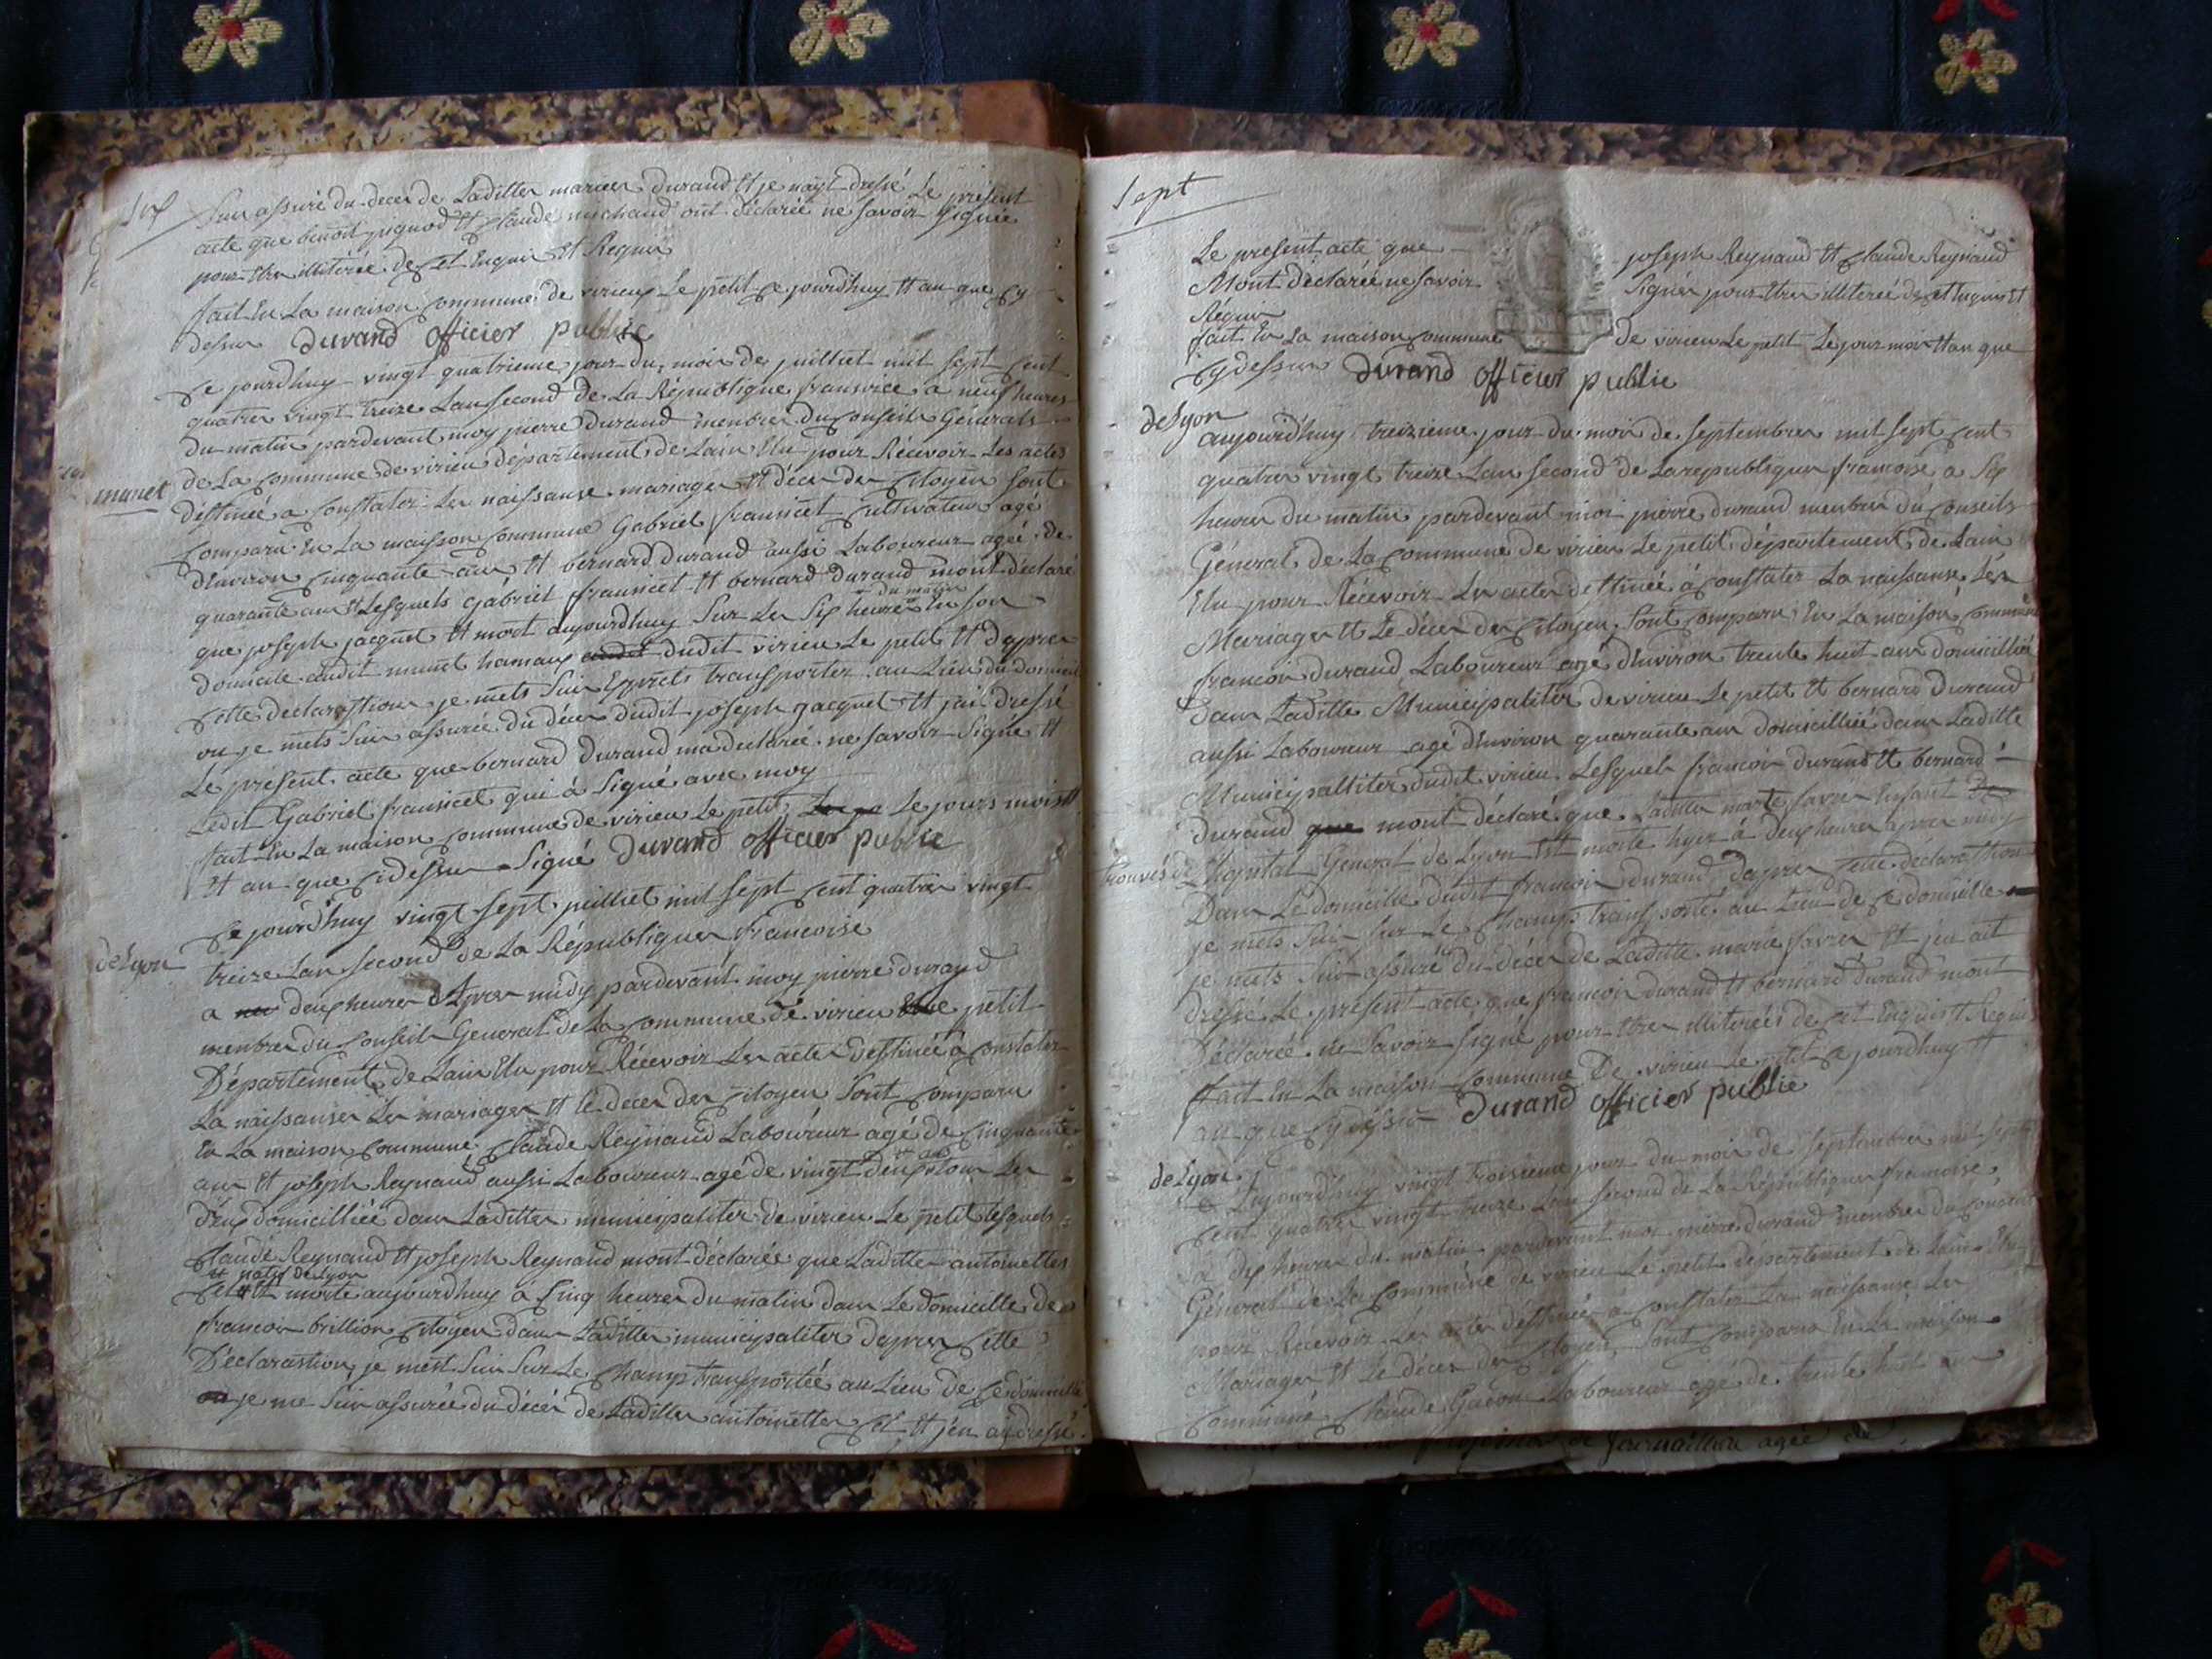 Six
suis assuré du deces de Laditte durand et je nayt dressé Le présent
acte que benoit et Claude michaud ont déclarée ne savoir signée
pour être illiterée de cet Enquis et Requis
fait En La maison Commune de virieux Le petit Ce jourdhuy et an que Cy
dessus durand officier public
Ce jourdhuy vingt quatrieme jour du mois de juilliet mil sept Cent
quatre vingt treize Lan second de La République a neuf heures
du matin pardevant moy pierre durand menbre du Conseil Général
de La Commune de virieu département de Lain Elu pour Récevoir Les actes
munet
destinée a Constater Les naissanse mariages et déces des Citoyen sont
Comparu En La maisson Commune Gabriel Cultivateur agé
dEnviron Cinquante ans et bernard durand aussi Laboureur agée de
quarante ans et Lesquels Gabriel et bernard durand mont déclaré
que joseph jacquet et mort aujourdhuy sur Les six heures du matin En son
domicile audit munet hamaux dudit virieu Le petit et dapres
Cette declaration je mets suis transporter au Lieu du
ou je mets suis assurée du déces dudit joseph jacquet et jai dressé
Le présent acte que bernard durand ma declarée ne savoir signé et
Ledit Gabriel qui à signé avec moy
fait En La maison Commune de virieu Le petit Le jours mois et
et an que Cidessus signé durand officier public
de Lyon
Ce jourdhuy vingt sept juilliet mil sept Cent quatre vingt
treize Lan second de La République francoise
a deux heures Apres midy pardevant moy pierre durand
menbre du Conseil General de La Commune de virieu Le petit
Département de Lain Elu pour Récevoir Les actes destinée à Constater
La naissanse Les mariages et Le deces des Citoyen sont Comparu
En La maison Commune Claude Reynaud Laboureur agé de Cinquante
ans et joseph Reynaud aussi Laboureur agé de vingt deux ans tous Les
deux domicilliée dans Laditte municipaliter de virieu Le petit lesquels
Claude Reynaud et joseph Reynaud mont déclarée que Laditte antoinette
et natif de Lyon
et morte aujourdhuy à Cinq heures du matin dans Le domicille de
francois brillion Citoyen dans Laditte municipaliter dapres Cette
Déclaration je mest suis sur Le Champ transportée au Lieu de Ce domicille
ou je me suis assurée du déces de Laditte antoinette et jen ai dressé
Sept
Le present acte que joseph Reynaud et Claude Reynaud
Mont déclarée ne savoir signér pour être illiterée de cet Enquis et
Réquis
fait En La maison Commune de virieu Le petit Le jour mois et an que
Cydessus durand officier public
de Lyon
aujourdhuy treizieme jour du mois de septembre mil sept Cent
quatre vingt treize Lan second de La republique francoise à six
heures du matin pardevant moi pierre durand menbre du Conseils
Géneral de La Commune de virieu Le petit département de Lain
Elu pour Récevoir Les actes destinée à Constater La naissanse Les
Mariages et Le déces des Citoyen sont Comparu En La maison Commune
francois durand Laboureur agé dEnviron trente huit ans domicilliée
dans Laditte Municipaliter de virieu Le petit et bernard durand
aussi Laboureur agé dEnviron quarante ans domicilliée dans Laditte
Municipalliter dudit virieu Lesquels francois durand et bernard
durand que mont déclaré que Laditte marie favre Enfant
trouvés de Lhopital General de Lyon et morte hyer à Deux heures apres midy
Dans Le domicille dudit francois durand dapres Cette déclaration
je mets suis sur Le Champ transporté au Lieu de Ce domicille
je mets suis assuré du déces de Laditte marie favre et jen ait
dressé Le présent acte que francois durand et bernard durand mont
Déclarée ne savoir signé pour être illiterées de cet Enquis et Requis
fait En La maison Commune De virieu Le petit Ce jourdhuy et
an que Cydessus durand officier public
de Lyon
Aujourdhuy vingt troisieme jour du mois de septembre mil sept
Cent quatre vingt treize Lan second de La République francoise
a dix heures du matin pardevant moi pierre durand menbre du Conseil
Géneral de La Commune de virieu Le petit departement de Lain Elu
pour Récevoir Les actes destinée a Constater La naissanse Les
Mariages et Le déces des Citoyen sont Comparu En La maison
Commune Claude Laboureur agé de trente huit ans
agée de